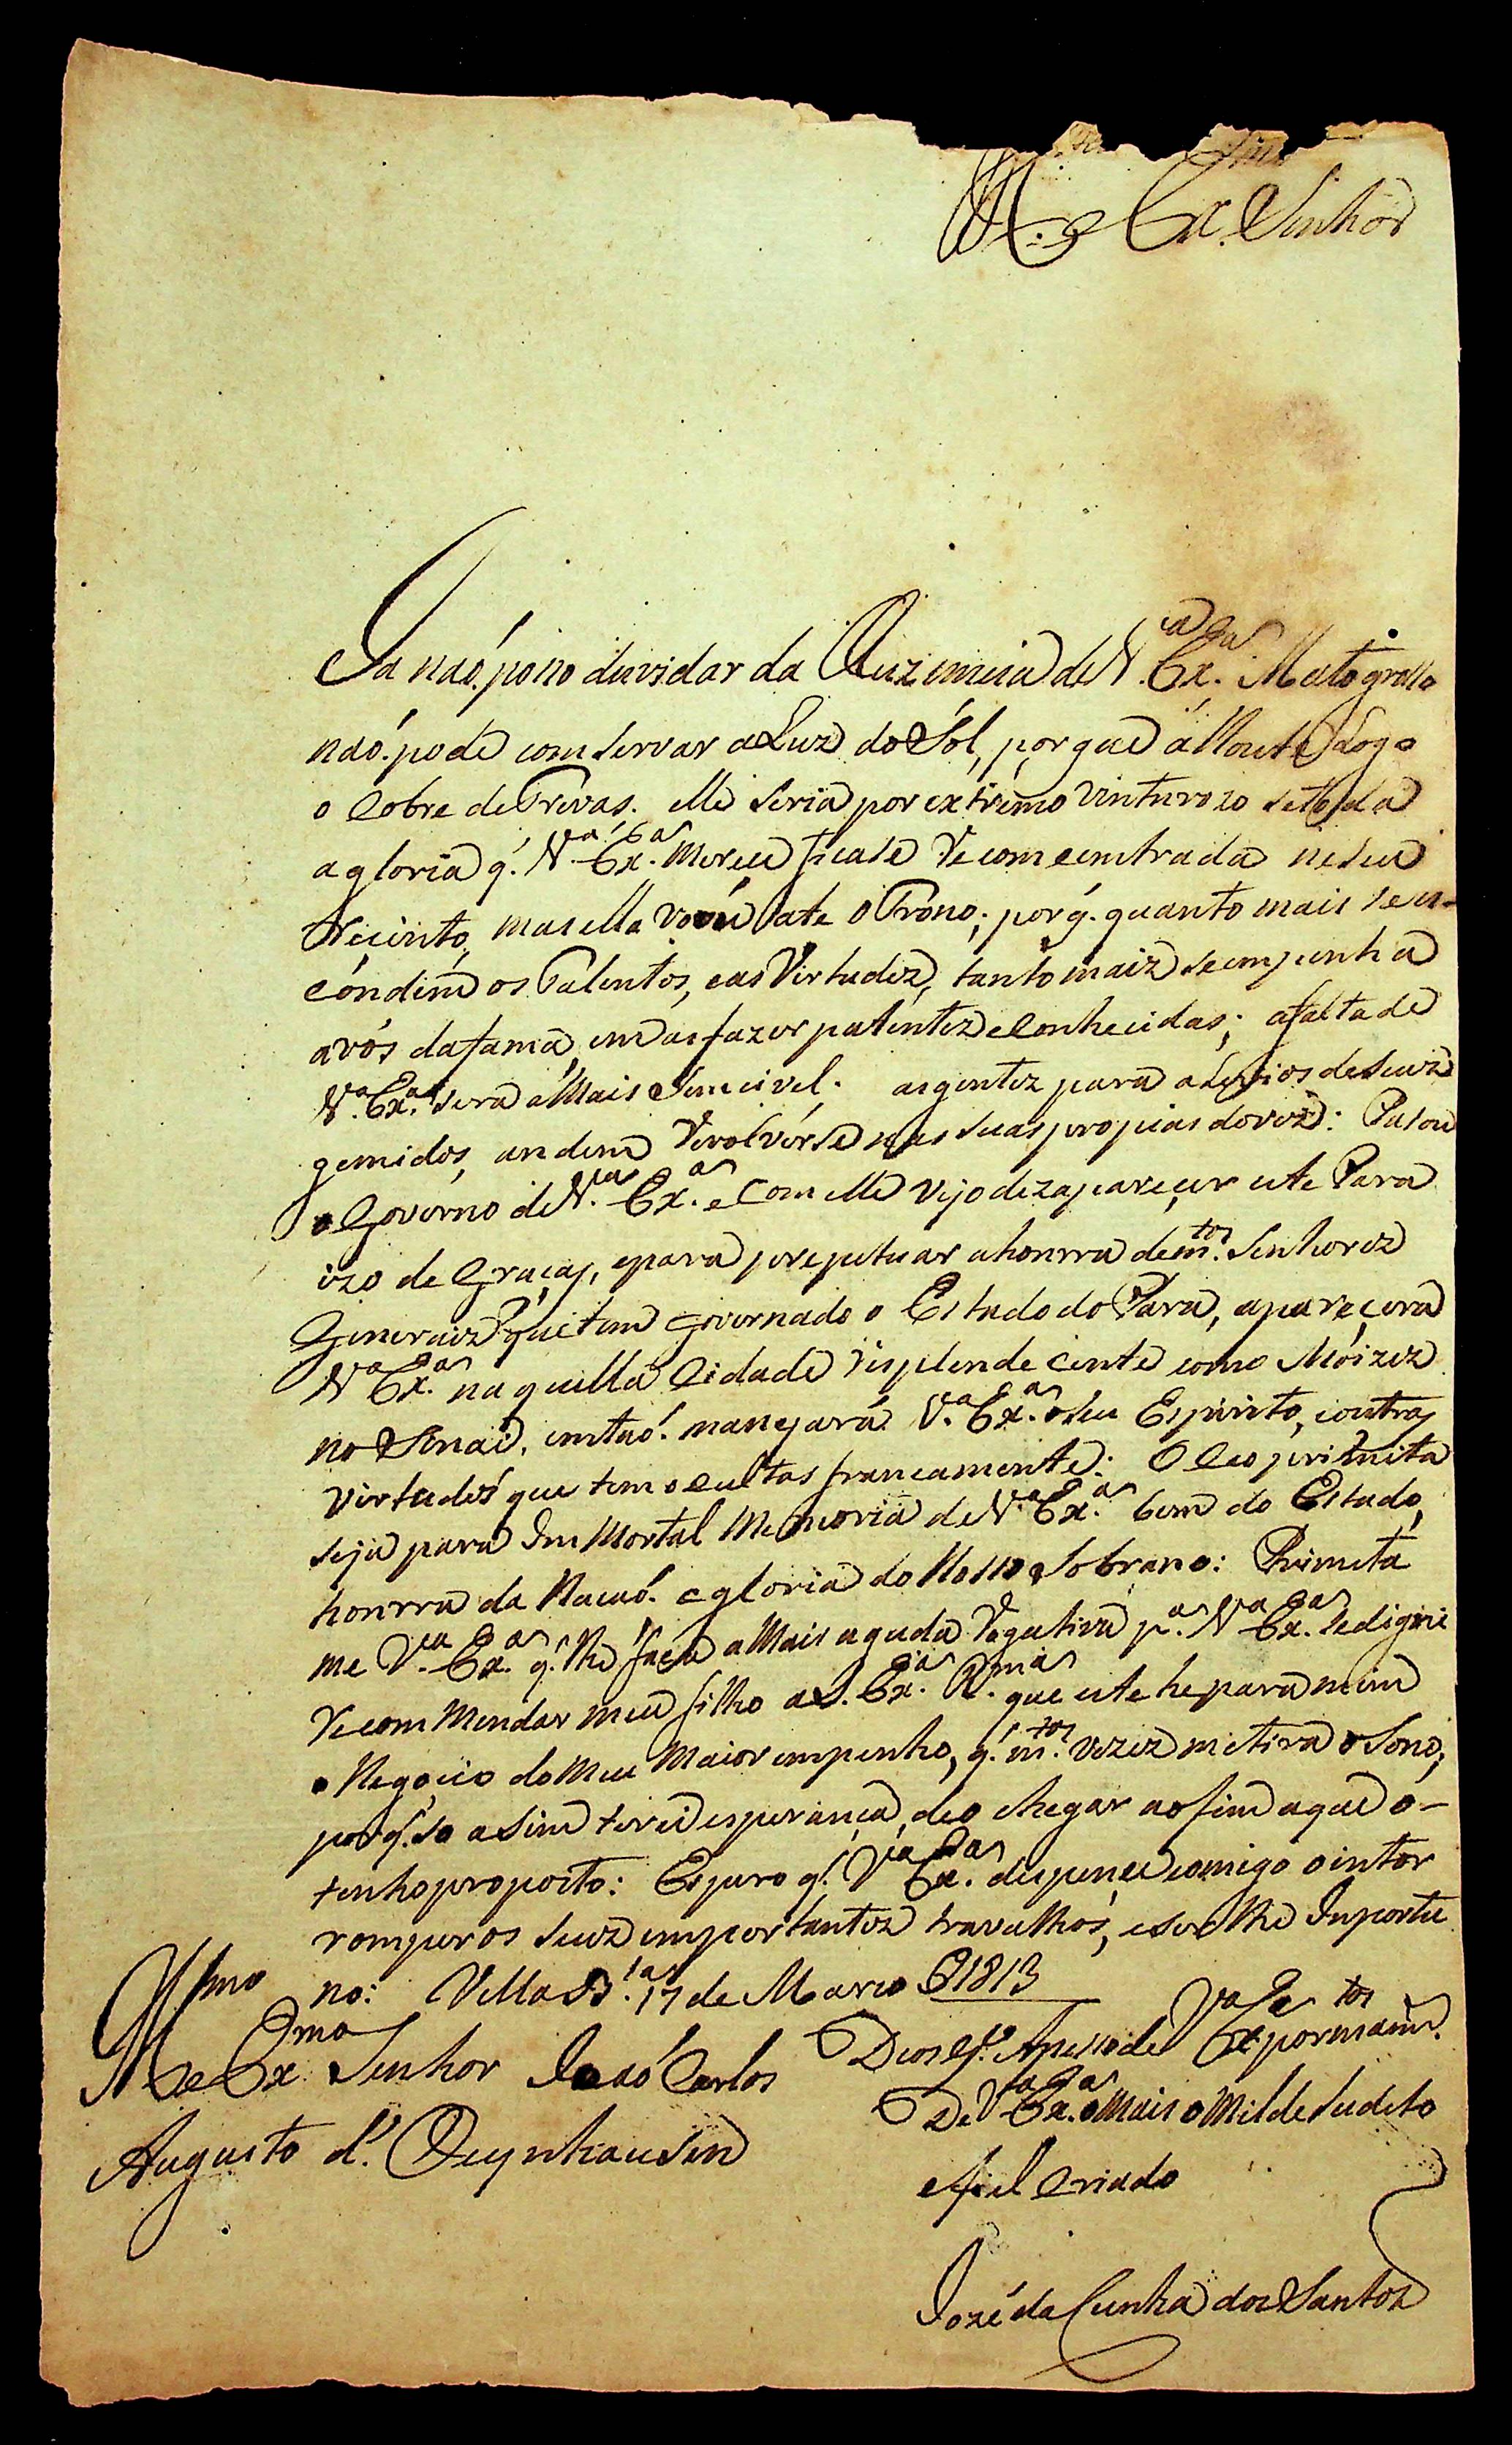 Ill.mo e Ex.mo Senhor
Ja naó posso duvidar da Auzencia de V.a Ex.a Matogrosso
naó pode comservar a Luz do Sol, porque a Noute Logo
o Cobre de Trevas. elle seria por extremo Vinturozo se toda
a gloria q. V.a Ex.a Merece ficase Recomcentrada neseu
Recinto, mas ella vôou ate o Trono; porq. quanto mais se es-
côndem os Talentos, e as Virtudez, tanto maiz se empenha
a vós da fama em as fazer patentez e Conhecidas; a falta de
V.a Ex.a sera a Mais Senceivel. as gentez para alivios de seuz
gemidos, andem Revolverse nas suas propias dorez: Pasou
o Governo de V.a Ex.a e Com elle vejo dezapareçer este Para
izo de Graças, e para prepetuar a honrra de m.tos Senhorez
Generaiz que tem Governado o Estado do Para, apareçera
V.a Ex.a naquella Cidade Resplendecente como Móizez
no Sinai, emtaó manejará V.a Ex.a o seu Espirito, e outras
virtudes que tem ocultas francamente: O Ceo primita
seja para Immortal Memoria de V.a Ex.a bem do Estado,
honrra da Nacaó e gloria do Nosso Sobrano: Primita
me V.a Ex.a q. lhe faça a Mais aguda Rogativa p.a V.a Ex.a se digne
Recommendar meu filho a S. Ex.a R.ma que este he para mim
o Negocio do Meu Maior empenho, q. m.tas vezez me tira o Sono;
porq. so asim terei esperança, de o chegar ao fim a que o-
tenho proposto: Espero q. V.a Ex.a despence comigo o inter
romper os seuz emportantez travalhos, e ser lhe Inportu
no: Villa B.a 17 de Marco D 1813
Deos g.e A pessoa de V.a Ex.a por m.tos ann.s
Ill.mo e Ex.mo Senhor Joaó Carlos
Augusto d'. Oeynhausen
De V.a Ex.a o Mais oMilde Sudito
e fiel Criado
Jozé da Cunha dos Santos